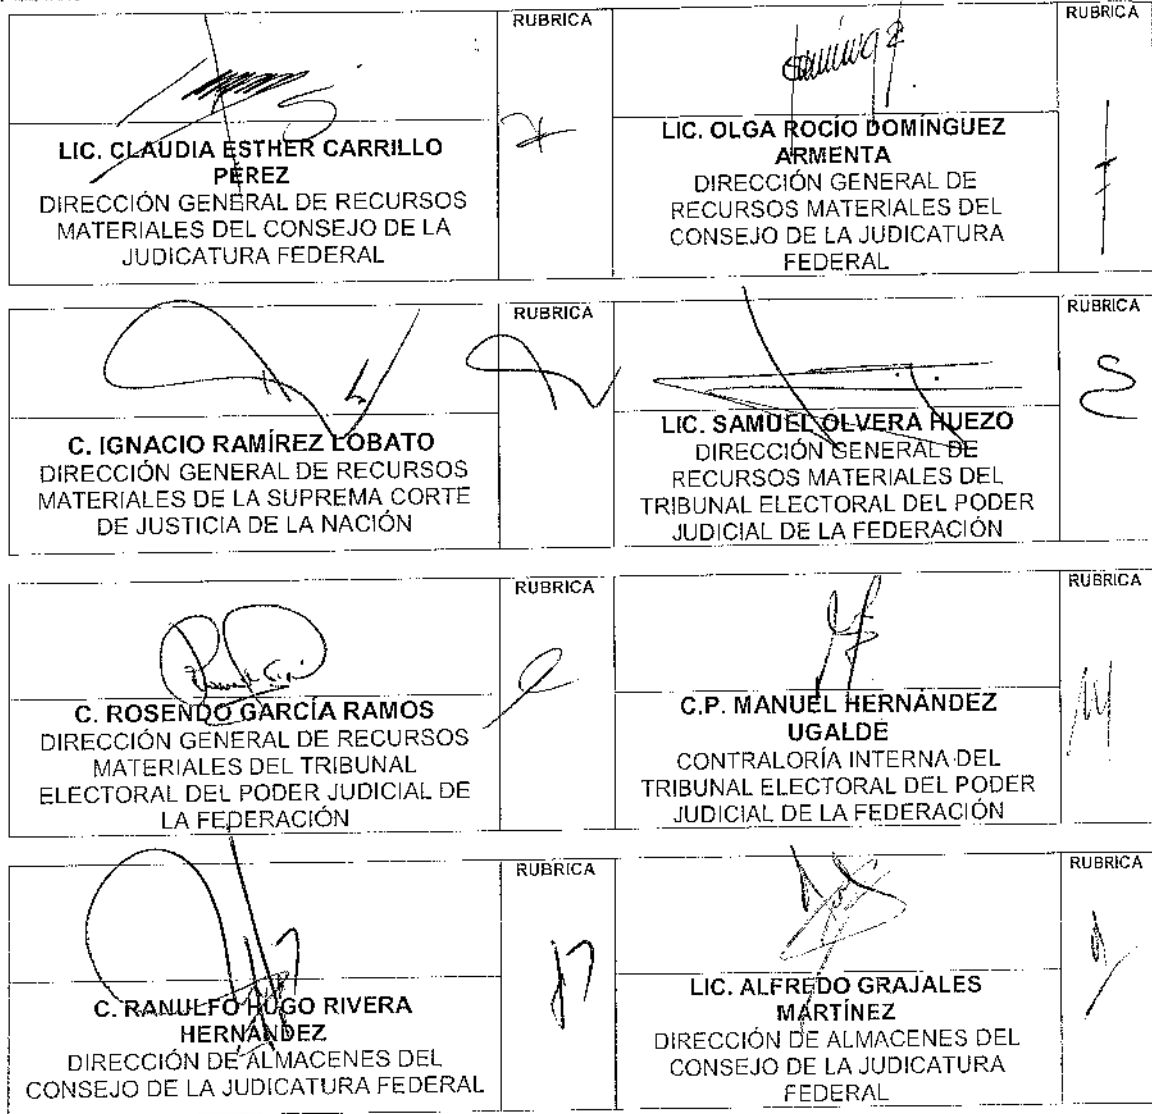 RUBRICA
LIC. CLAUDIA ESTHER CARRILLO
PÉREZ
DIRECCIÓN GENERAL DE RECURSOS
MATERIALES DEL CONSEJO DE LA
JUDICATURA FEDERAL
RUBRICA
LIC. OLGA ROCÍO DOMÍNGUEZ
ARMENTA
DIRECCIÓN GENERAL DE
RECURSOS MATERIALES DEL
CONSEJO DE LA JUDICATURA
FEDERAL
RUBRICA
C. IGNACIO RAMÍREZ LOBATO
DIRECCIÓN GENERAL DE RECURSOS
MATERIALES DE LA SUPREMA CORTE
DE JUSTICIA DE LA NACIÓN
RUBRICA
LIC. SAMUEL OLVERA HUEZO
DIRECCIÓN GENERAL DE
RECURSOS MATERIALES DEL
TRIBUNAL ELECTORAL DEL PODER
JUDICIAL DE LA FEDERACIÓN
RUBRICA
C. ROSENDO GARCÍA RAMOS
DIRECCIÓN GENERAL DE RECURSOS
MATERIALES DEL TRIBUNAL
ELECTORAL DEL PODER JUDICIAL DE
LA FEDERACIÓN
RUBRICA
C.P. MANUEL HERNÁNDEZ
UGALDE
CONTRALORÍA INTERNA DEL
TRIBUNAL ELECTORAL DEL PODER
JUDICIAL DE LA FEDERACIÓN
RUBRICA
C. RANULFO HUGO RIVERA
HERNÁNDEZ
DIRECCIÓN DE ALMACENES DEL
CONSEJO DE LA JUDICATURA FEDERAL
RUBRICA
LIC. ALFREDO GRAJALES
MARTÍNEZ
DIRECCIÓN DE ALMACENES DEL
CONSEJO DE LA JUDICATURA
FEDERAL